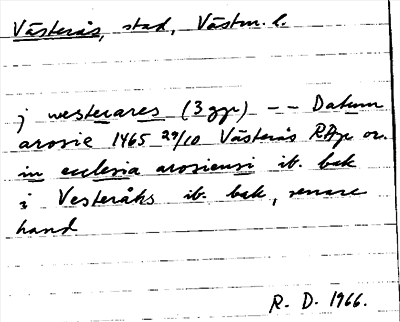 Västerås, stad, Västm. l.
j westerares (3 ggr) -- Datum
arosie 1465 29/10 Västerås RAp or.
in ecclesia arosiensi ib. bak
i Vesteråhs ib. bak, senare
hand
R. D. 1966.